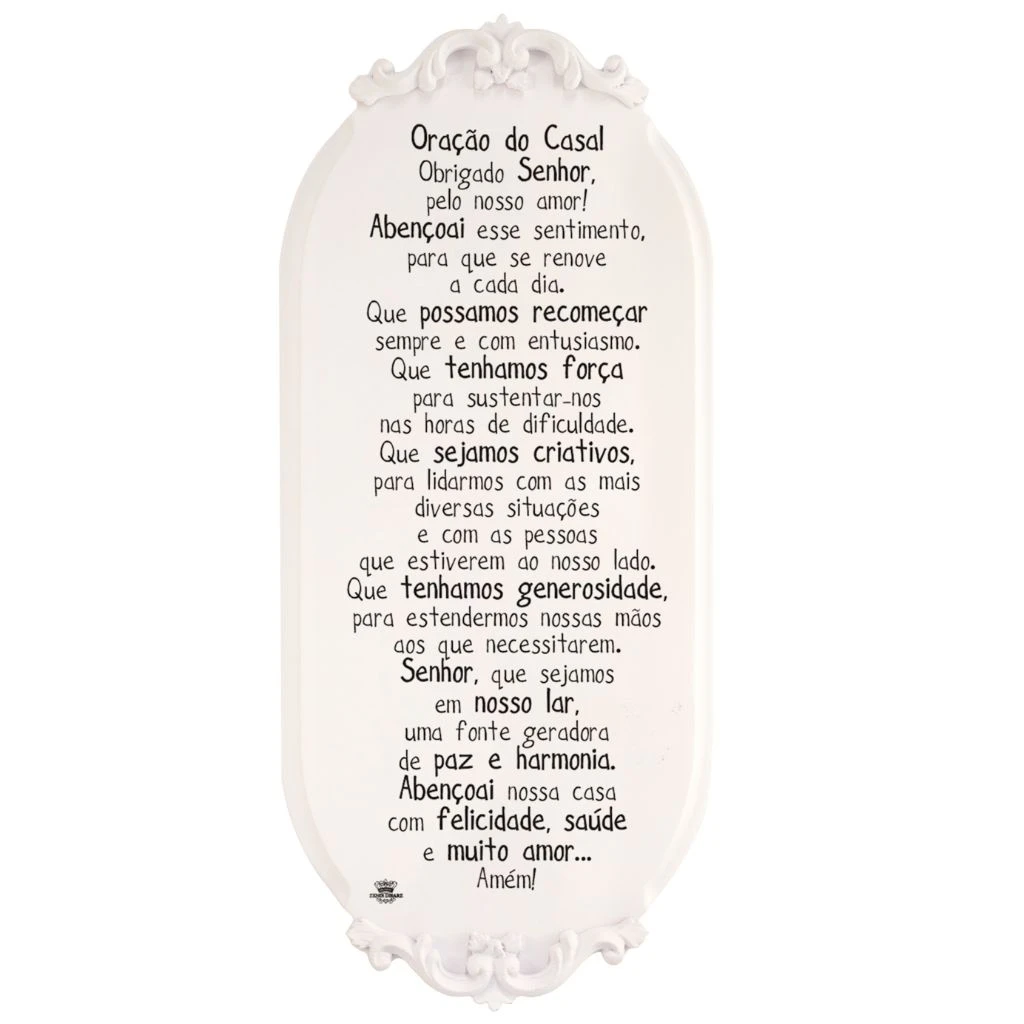 Oração do Casal
Obrigado Senhor,
pelo nosso amor!
Abençoai esse sentimento,
para que se renove
a cada dia.
Que possamos recomeçar
sempre e com entusiasmo.
Que tenhamos força
para sustentar-nos
nas horas de dificuldade.
Que sejamos criativos,
para lidarmos com as mais
diversas situações
e com as pessoas
que estiverem ao nosso lado.
Que tenhamos generosidade,
para estendermos nossas mãos
aos que necessitarem.
Senhor, que sejamos
em nosso lar,
uma fonte geradora
de paz e harmonia.
Abençoai nossa casa
com felicidade, saúde
e muito amor...
Amém!